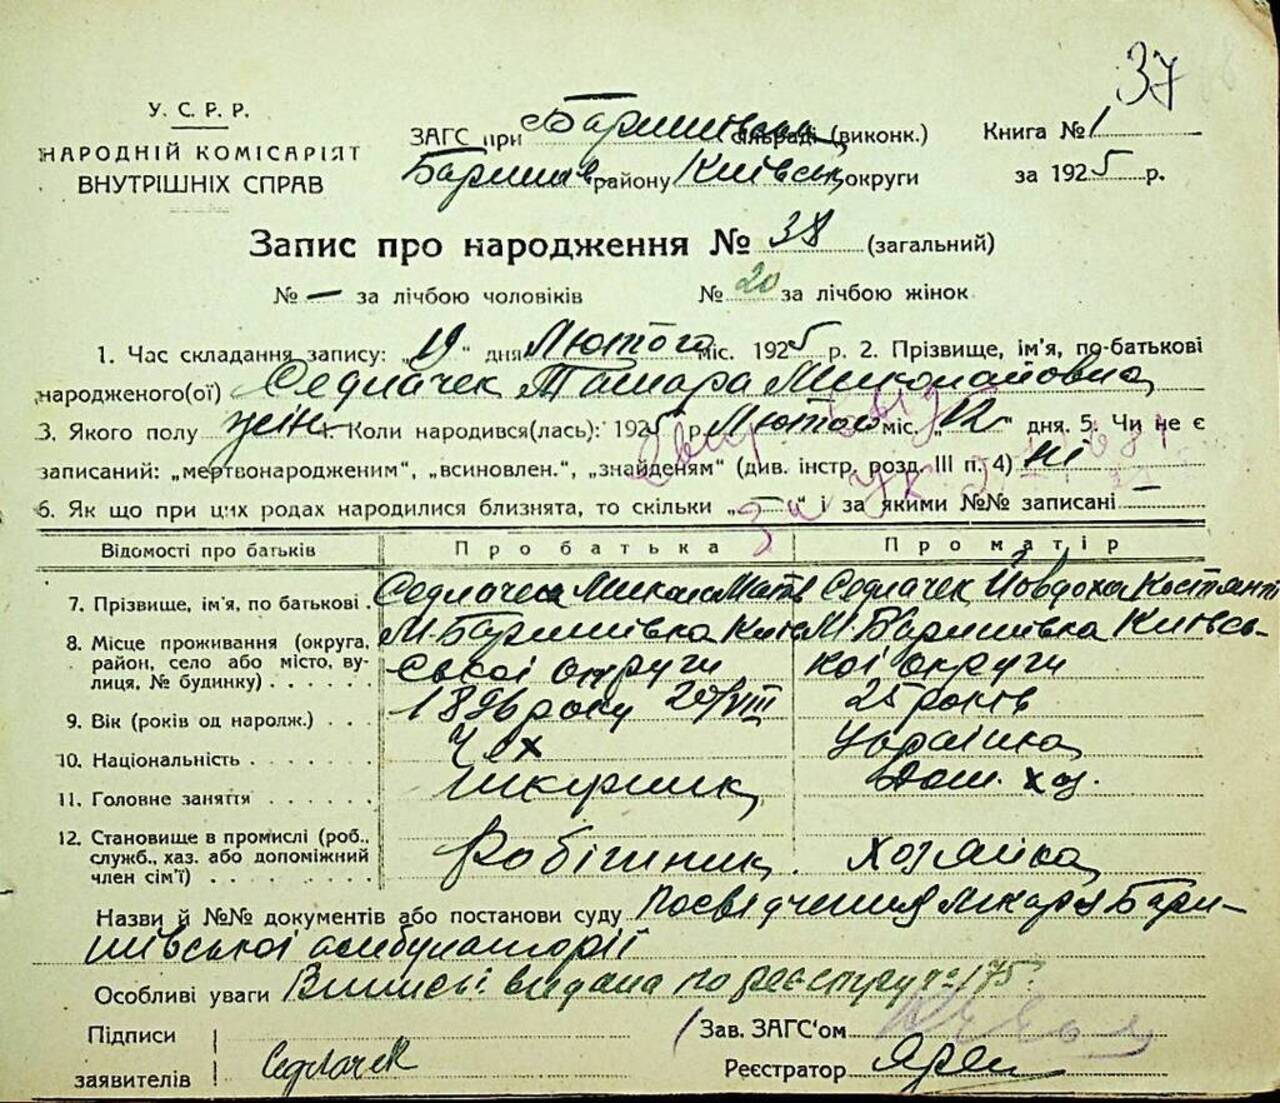 37
У. С. Р. Р.
НАРОДНІЙ КОМІСАРІЯТ
ВНУТРІШНІХ СПРАВ
ЗАГС при Баришівськ сільраді (виконк.) Книга № 1
Баришів району Київськ округи за 1925 р.
Запис про народження № 38 (загальний)
№ — за лічбою чоловіків № 20 за лічбою жінок
1. Час складання запису: „19“ дня Лютого міс. 1925 р. 2. Прізвище, ім'я, по-батькові
народженого(ої) Седлачек Тамара Миколайовна
3. Якого полу жін 4. Коли народився(лась): 1925 р. Лютого міс. „12“ дня. 5. Чи не є
записаний: „мертвонародженим“, „всиновлен.“, „знайденям“ (див. інстр. розд. III п. 4) ні
6. Як що при цих родах народилися близнята, то скільки „—“ і за якими №№ записані —
Відомості про батьків Про батька Про матір
7. Прізвище, ім'я, по батькові . Седлачек Микола Матв Седлачек Йовдоха Костянт
8. Місце проживання (округа, М. Баришівка Київ М. Баришівка Київсь-
район, село або місто, ву- ської округи кої округи
лиця, № будинку) . . . . . .
9. Вік (років од народж.) . . . 1896 року 20/VIII 25 років
10. Національність . . . . . . . Чех Українка
11. Головне заняття . . . . . . Шкурник Дом. хоз.
12. Становище в промислі (роб.,
служб., хаз. або допоміжний Робітник. Хозяйка
член сім'ї) . . . . . . . . .
Назви й №№ документів або постанови суду Посвідчення лікаря Бари-
шівської амбулаторії
Особливі уваги Виписі видана по реєстру № 175.
Підписи Зав. ЗАГС'ом
заявителів Седлачек Реєстратор